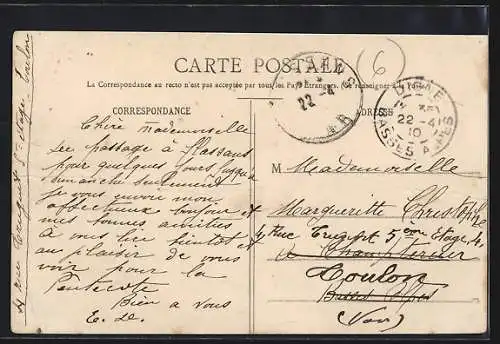 CARTE POSTALE
La Correspondance au recto n'est pas acceptée par tous les Pays Étrangers. (Se renseigner à la Poste)
6
22 -4
DIGNE
22 -4
10
BASSES ALPES
CORRESPONDANCE
ADRESSE
Chère mademoiselle
de passage à Flassans
pour quelques jours jusqu'à
dimanche seulement
je vous envoie mon
affectueux bonjour et
mes bonnes amitiés
à vous lire bientôt et
au plaisir de vous
voir pour la
Pentecote
Bien a vous
E. D.
4 rue 5e etage Toulon
M Mademoiselle
Margueritte Christophe
4 Rue 5ème Etage, 4
a Champtercier
Toulon
Basses Alpes
(Var)